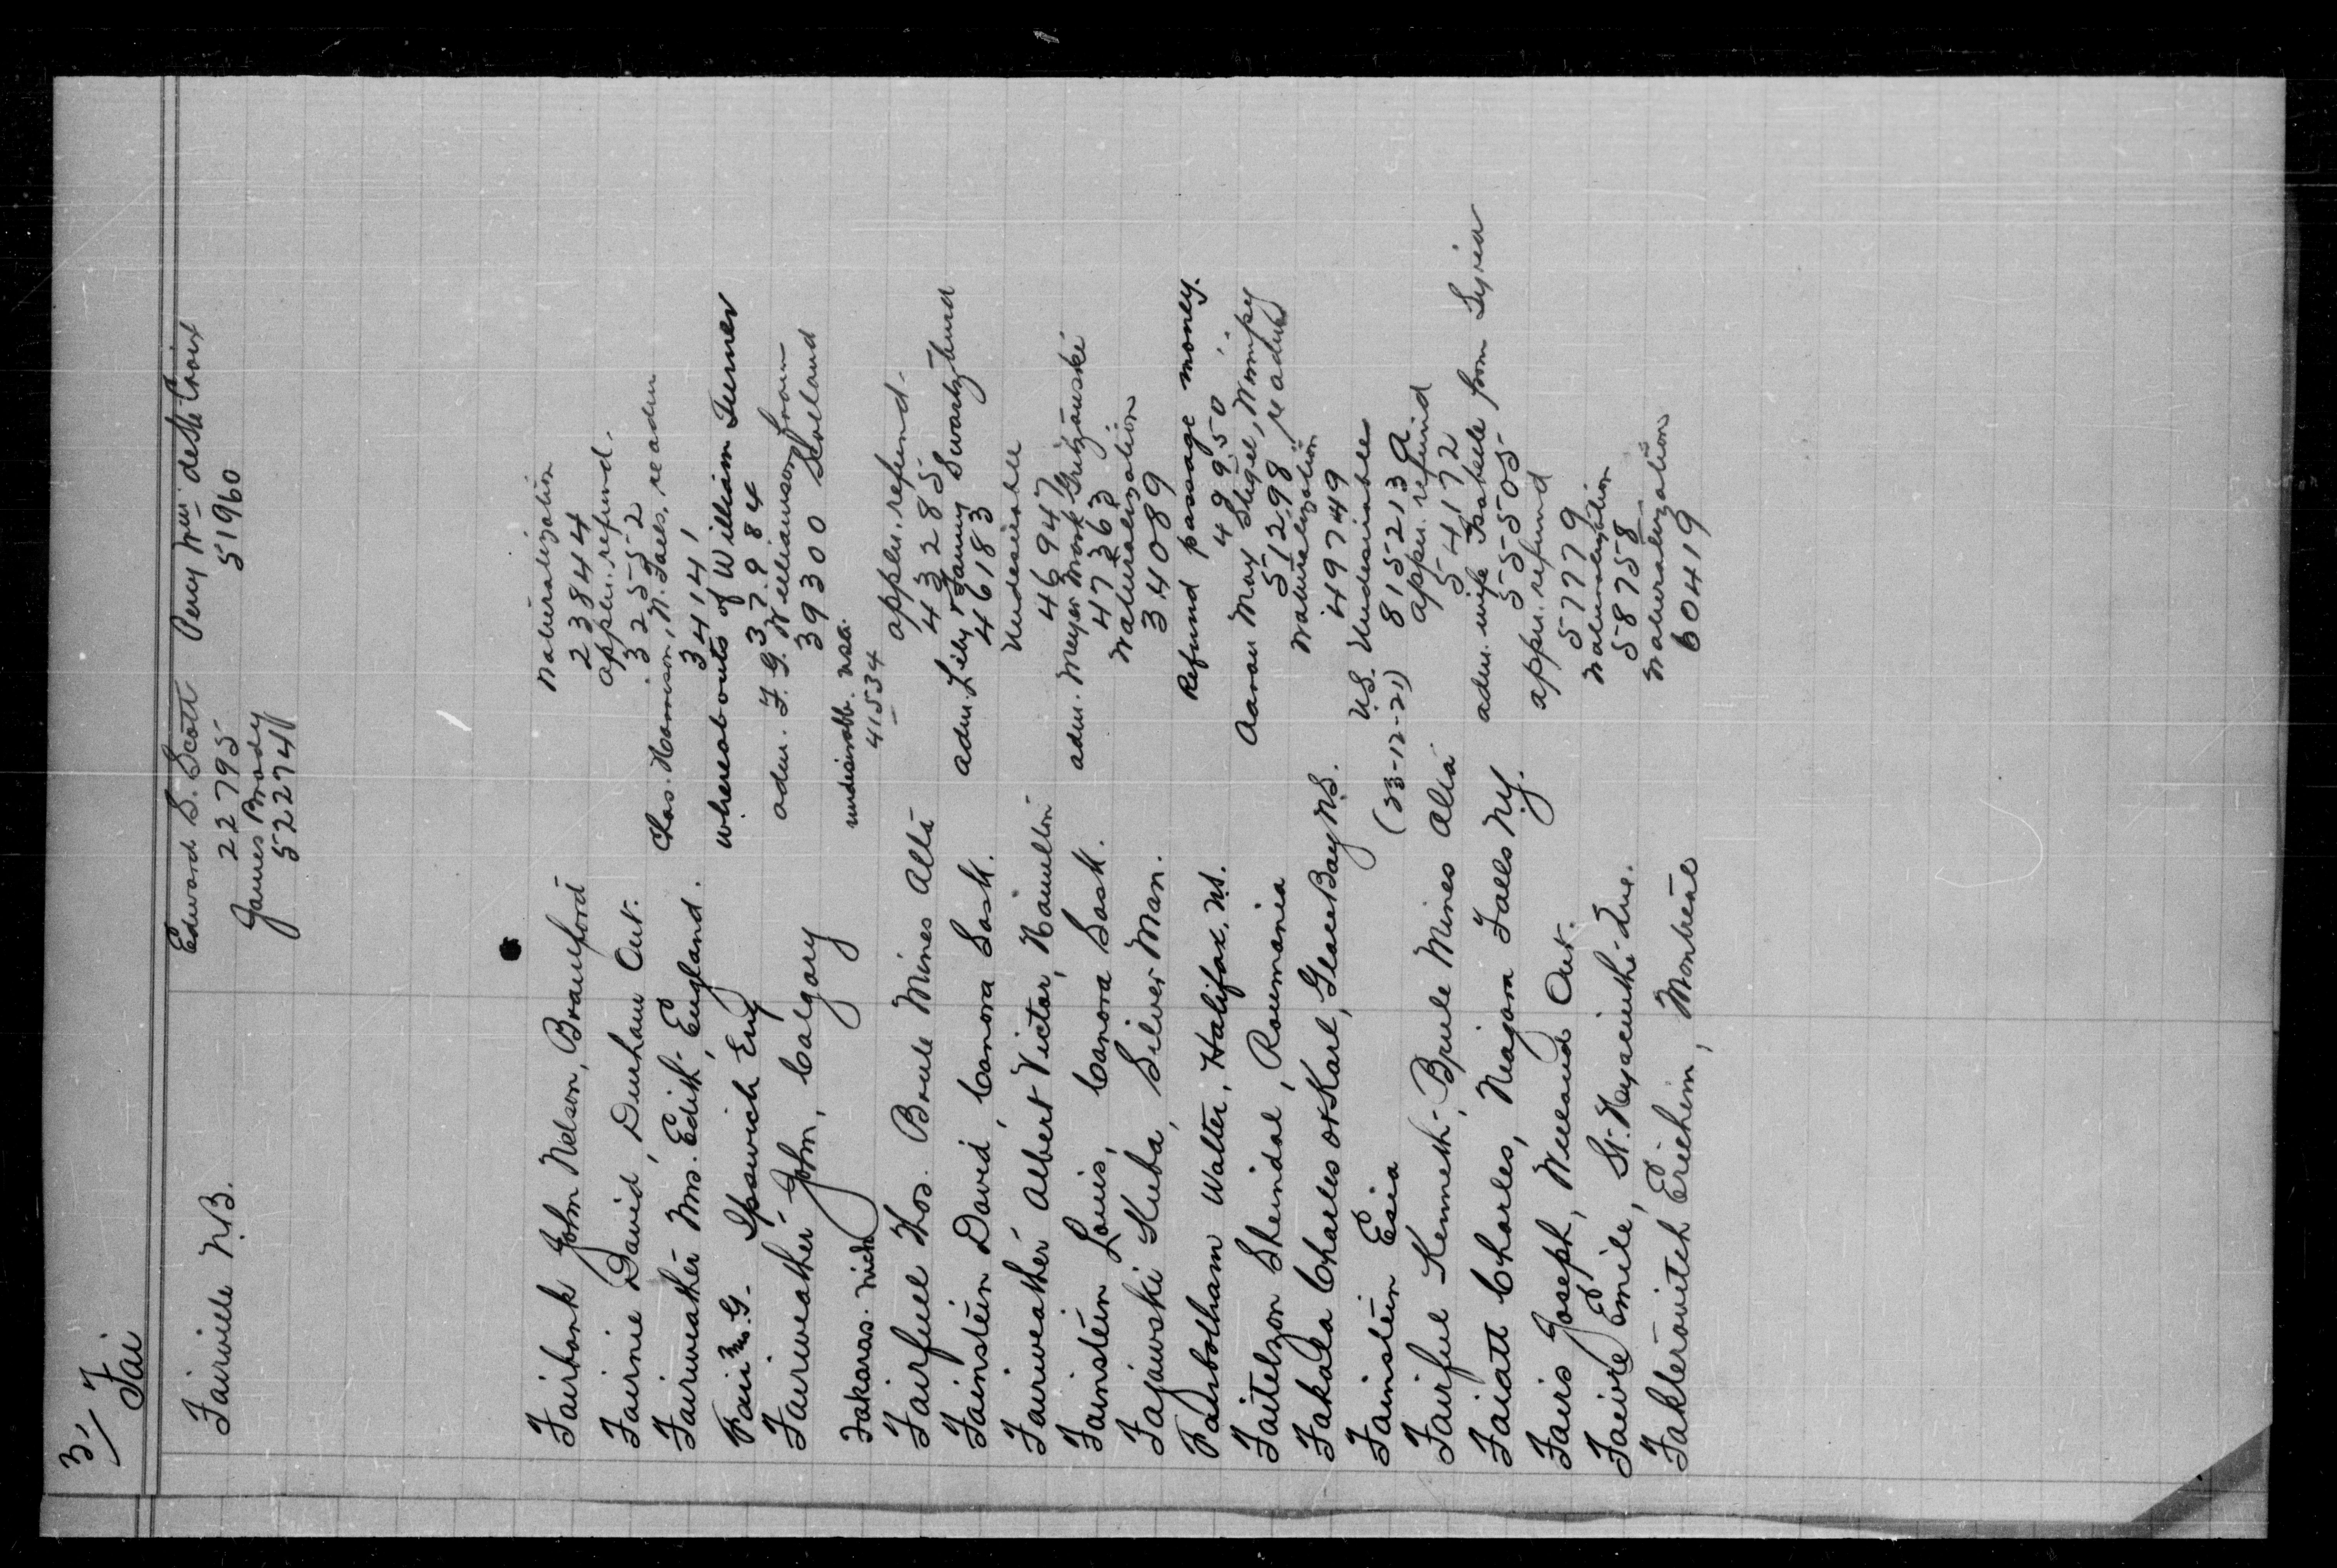 3/7
Fai
Fairville N.B. Edward S. Scott Percy Wm deste Croix
22795 51960
James Brody
522741
Fairbank John Nelson, Brantford Naturalization
23844
Fairnie David, Durham Ont. appln. refund.
32552
Fairweather Mrs. Edith, England. Chas. Harrison, N. Falls, re adm
34141
Fair Mrs. G. Ipswich Eng whereabouts of William Turner
37984
Fairweather John, Calgary adm. F. G. Williamson from
39300 Holland
Fakaras. Nick undesirable. USA.
41534
Fairfuel Thos. Brule Mines Alta appln. refund.
43285
Fainstein David, Canora Sask. adm. Lily & Fanny Swartzburd
46183
Fairweather Albert Victor, Hamilton Undesirable
46947
Fainstein Louis, Canora Sask. adm. Meyer Mork
47363
Fajawski Kuba, Silver Man. Naturalization
34089
Farbotham Walter, Halifax, N.S. Refund passage money.
49950
Faitelzon Sheindal, Roumania Aaron Max Shigel, Winnipeg
51298 re adm
Fakala Charles or Karl, Glace Bay N.S. Naturalization
49749
Fainstein Esia U.S. Undesirables
(23-12-21)815213 a
Fairful Kenneth, Brule Mines Alta appn. refund
54172
Faiatt Charles, Niagara Falls N.Y. adm. wife Isabelle from Syria
55505
Fairs Joseph, Welland Ont. appn. refund
57779
Faivre Emile, St. Hyacinthe Que. Naturalization
58758
Fakterovitch Erichim, Montreal Naturalization
60419